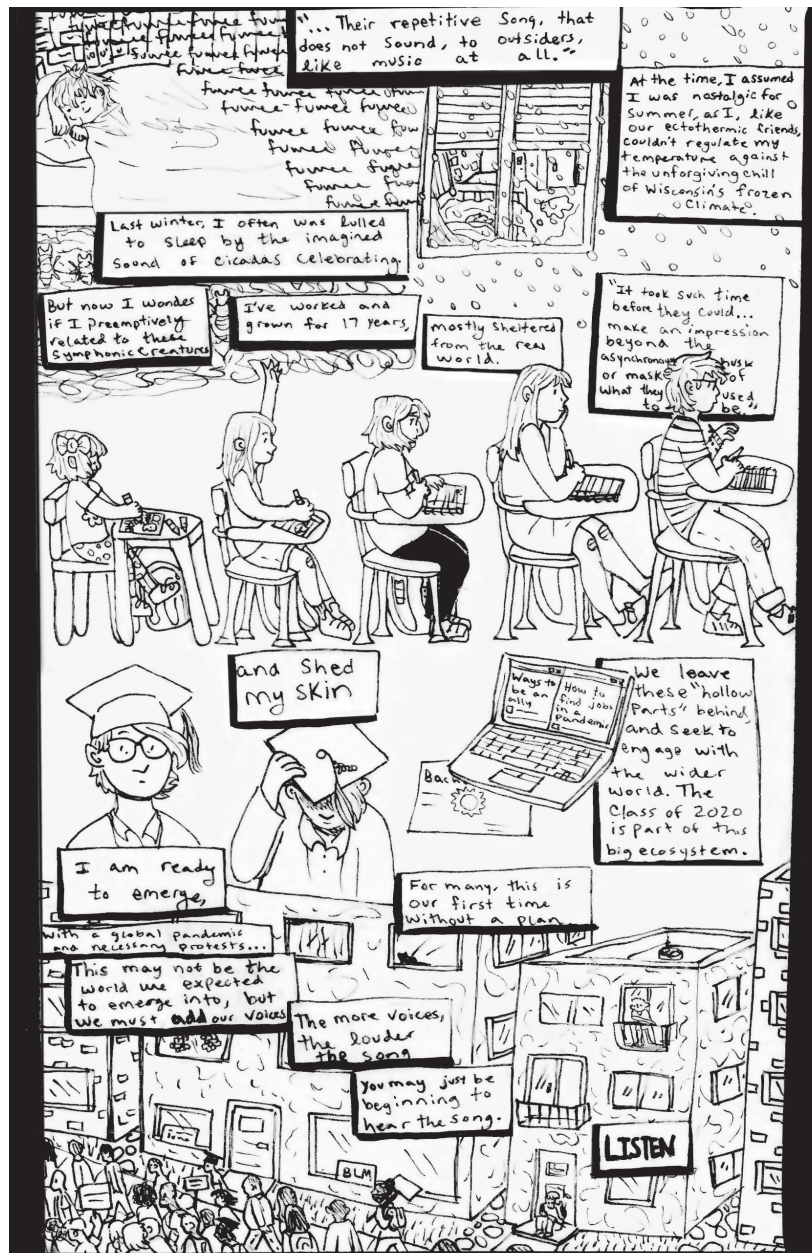 fuwee fuwee fuwee fuwee
fuwee fuwee fuwee fuwee
fuwee fuwee fuwee fuwee
fuwee fuwee
fuwee fuwee
fuwee fuwee fuwee
fuwee fuwee
fuwee fuwee
fuwee
fuwee
"... Their repetitive Song, that
does not Sound, to outsiders,
like music at all."
At the time, I assumed
I was nostalgic for
Summer, as I, like
our ectothermic friends,
couldn't regulate my
temperature against
the unforgiving chill
of Wisconsin's frozen
Climate.
Last winter, I often was lulled
to sleep by the imagined
sound of cicadas celebrating.
But now I wonder
if I preemptively
related to these
symphonic creatures
I've worked and
grown for 17 years,
mostly sheltered
from the real
world.
"It took such time
before they could...
make an impression
beyond the
asynchronous husk
or mask of
what they used
to be."
and shed
my skin
Ways to
be an
ally
How to
find jobs
in a
pandemic
2020
We leave
these "hollow
Parts" behind,
and seek to
engage with
the wider
world. The
Class of 2020
is part of this
big ecosystem.
I am ready
to emerge,
For many, this is
our first time
without a plan
with a global pandemic
and necessary protests...
This may not be the
world we expected
to emerge into, but
we must add our voices
The more voices,
the louder
the song
you may just be
beginning to
hear the song.
LISTEN
BLM